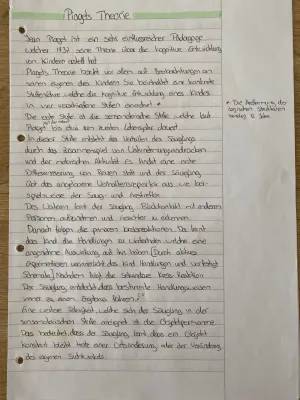 Piagets Theorie
Jean Piaget ist ein sehr einflussreicher Pädagoge
welcher 1937 seine Theorie über die kognitive Entwicklung
von Kindern erstellt hat.
Piagets Theorie beruht vor allem auf Beobachtungen an
seinen eigenen drei Kindern. Sie beinhaltet eine konkrete
Stufenfolge welche die kognitive Entwicklung eines Kindes
in vier verschiedene Stufen einordnet *
Die erste Stufe ist die sensomotorische Stufe welche laut
Piaget bis etwa zum zweiten Lebensjahr dauert
In dieser Stufe entsteht das Verhalten des Säuglings
durch das Zusammenspiel von Wahrnehmungseindrücken
und der motorischen Aktivität. Es findet eine erste
Differenzierung von Reizen statt und der Säugling
übt das angeborene Verhaltensrepertoire aus wie bei-
spielsweise der Saug- und Greifreflex.
Des Weiteren lernt der Säugling, Blickkontakt mit anderen
Personen aufzunehmen und Gesichter zu erkennen.
Danach folgen die primären Kreisreaktionen. Da lernt
das Kind die Handlungen zu wiederholen welche eine
angenehme Auswirkung auf ihn haben. Durch aktives
Experimentieren das Kind Handlungen und
Schemata. Nachdem folgt die sekundäre Kreis Reaktion
Der Säugling entdeckt, dass bestimmte Handlungsweisen
immer zu einem Ergebnis führen.
Eine weitere Fähigkeit, welche sich der Säugling in der
sensomotorischen Stufe aneignet ist die Objektpermanenz.
Das bedeutet, dass der Säugling lernt dass ein Objekt
konstant bleibt trotz einer Ortsänderung oder der Veränderung
des eigenen Standpunkts.
* Die
logischen Strukturen